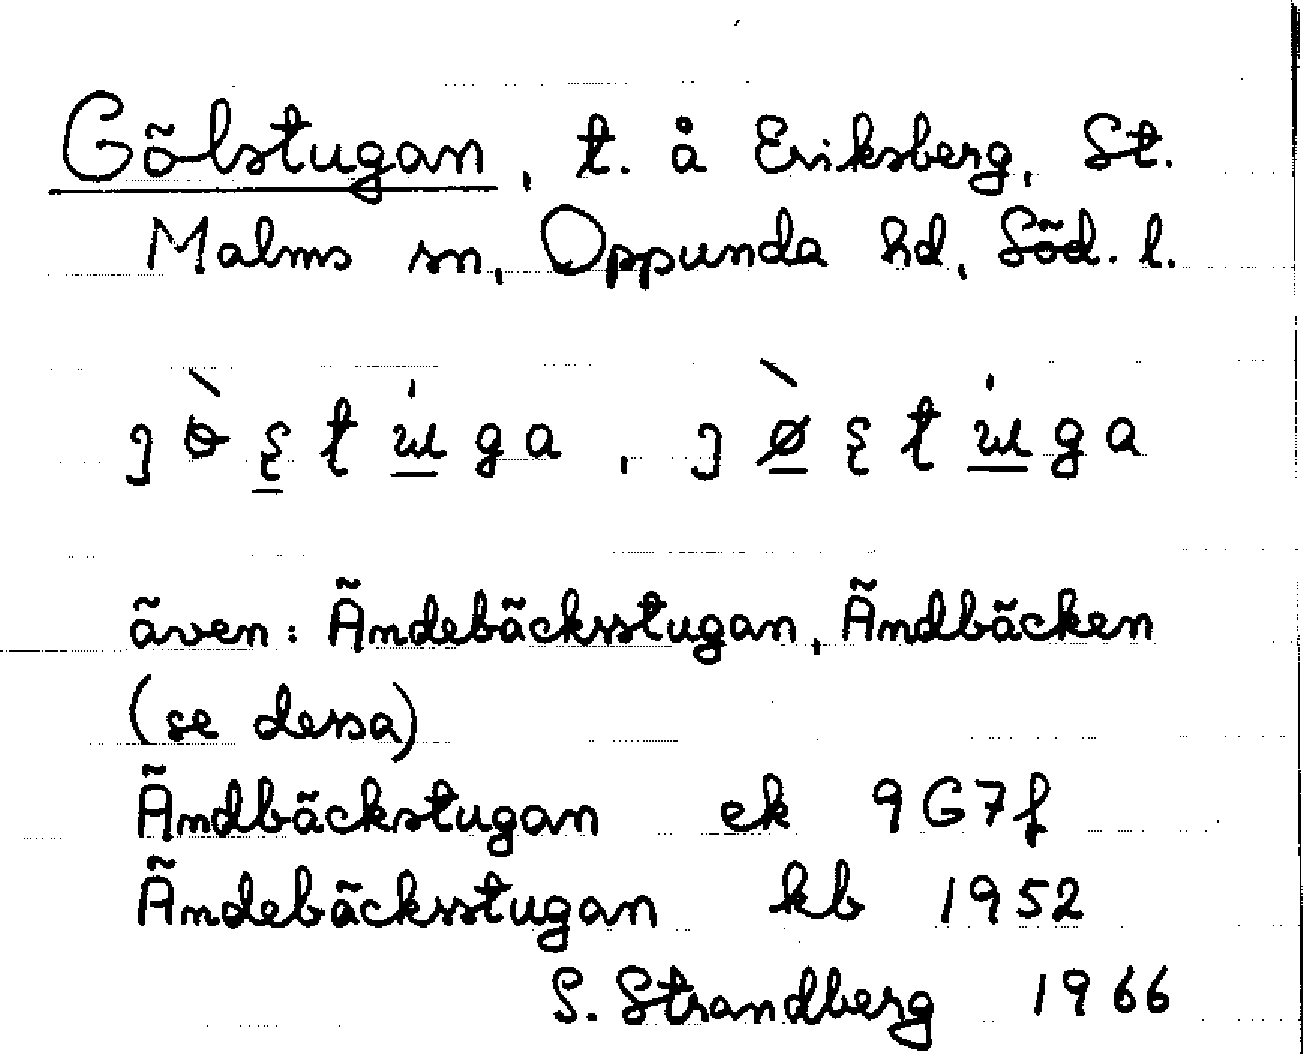 Gölstugan, t. å Eriksberg, St.
Malms sn, Oppunda hd, Söd. l.
även: Ändebäcksstugan, Ändbäcken
(se dessa)
Ändbäckstugan ek 9G7f
Ändebäcksstugan kb 1952
S. Strandberg 1966